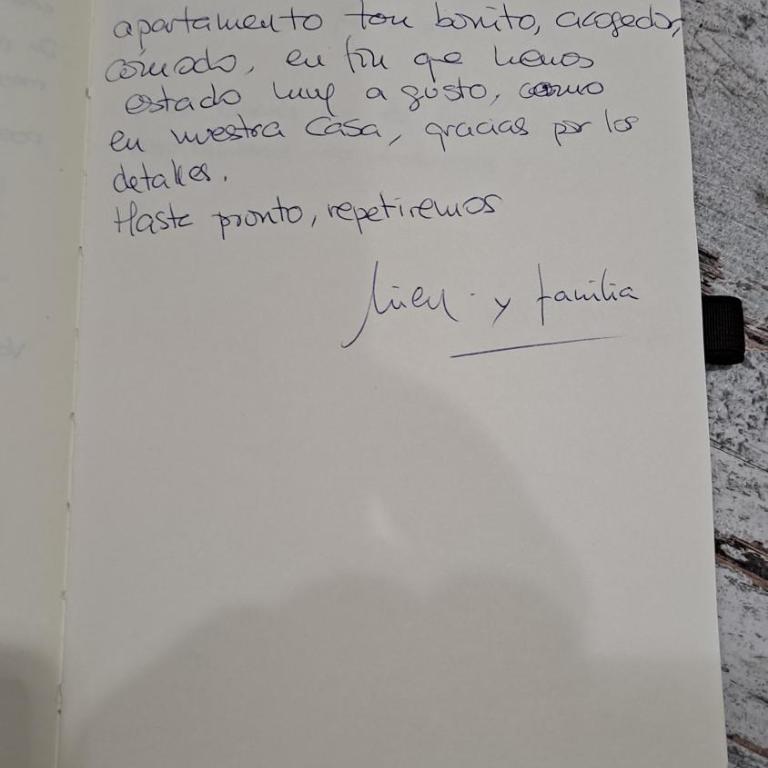 apartamento tan bonito, acogedor,
cómodo, en fin que hemos
estado muy a gusto, como
en nuestra casa, gracias por los
detalles.
Hasta pronto, repetiremos
y familia